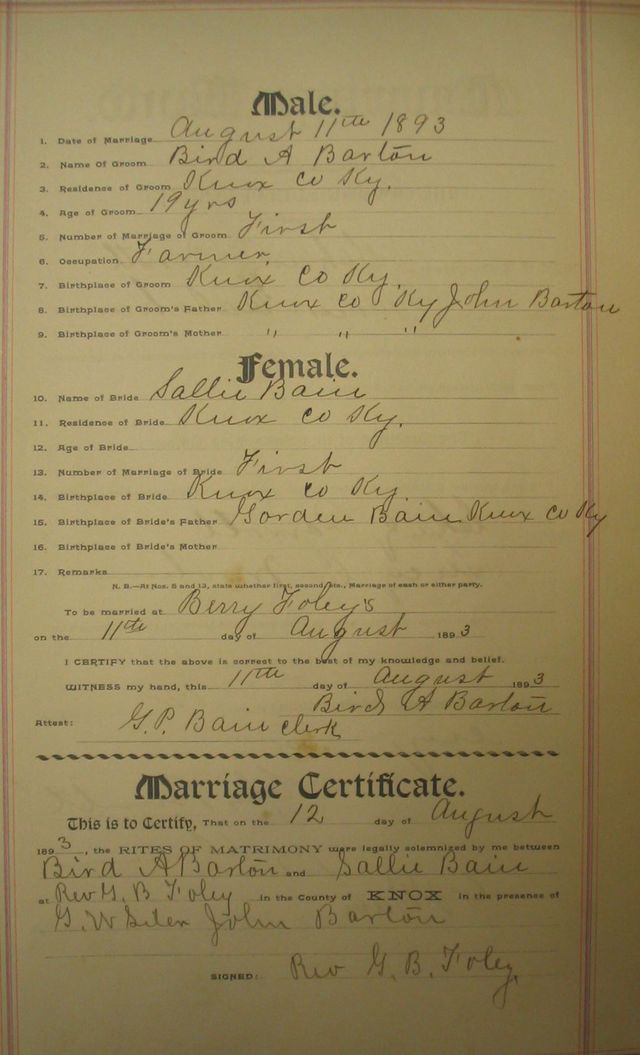 Male.
1. Date of Marriage August 11th 1893
2. Name Of Groom Bird A Barton
3. Residence of Groom Knox Co Ky.
4. Age of Groom 19 yrs
5. Number of Marriage of Groom First
6. Occupation Farmer.
7. Birthplace of Groom Knox Co Ky.
8. Birthplace of Groom's Father Knox Co Ky John Barton
9. Birthplace of Groom's Mother " " "
Female.
10. Name of Bride Sallie Bain
11. Residence of Bride Knox Co Ky.
12. Age of Bride
13. Number of Marriage of Bride First
14. Birthplace of Bride Knox Co Ky.
15. Birthplace of Bride's Father Gorden Bain Knox Co Ky
16. Birthplace of Bride's Mother
17. Remarks
N. B.—At Nos. 5 and 13, state whether first, second, etc., Marriage of each or either party.
To be married at Berry Foley's
on the 11th day of August 1893
I CERTIFY that the above is correct to the best of my knowledge and belief.
WITNESS my hand, this 11th day of August 1893
Bird A Barton
Attest: G.P. Bain Clerk
Marriage Certificate.
This is to Certify, That on the 12 day of August
1893, the RITES OF MATRIMONY were legally solemnized by me between
Bird A Barton and Sallie Bain
at Rev G. B Foley in the County of KNOX in the presence of
G. W Siler John Barton
SIGNED: Rev G. B. Foley